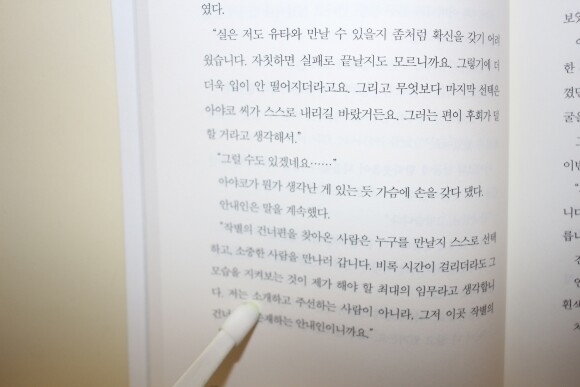 였다.
“실은 저도 유타와 만날 수 있을지 좀처럼 확신을 갖기 어려
웠습니다. 자칫하면 실패로 끝날지도 모르니까요. 그렇기에 더
더욱 입이 안 떨어지더라고요. 그리고 무엇보다 마지막 선택은
아야코 씨가 스스로 내리길 바랐거든요. 그러는 편이 후회가 덜
할 거라고 생각해서.”
“그럴 수도 있겠네요……”
아야코가 뭔가 생각난 게 있는 듯 가슴에 손을 갖다 댔다.
안내인은 말을 계속했다.
“작별의 건너편을 찾아온 사람은 누구를 만날지 스스로 선택
하고, 소중한 사람을 만나러 갑니다. 비록 시간이 걸리더라도 그
모습을 지켜보는 것이 제가 해야 할 최대의 임무라고 생각합니
다. 저는 소개하고 주선하는 사람이 아니라, 그저 이곳 작별의
안내인이니까요.”